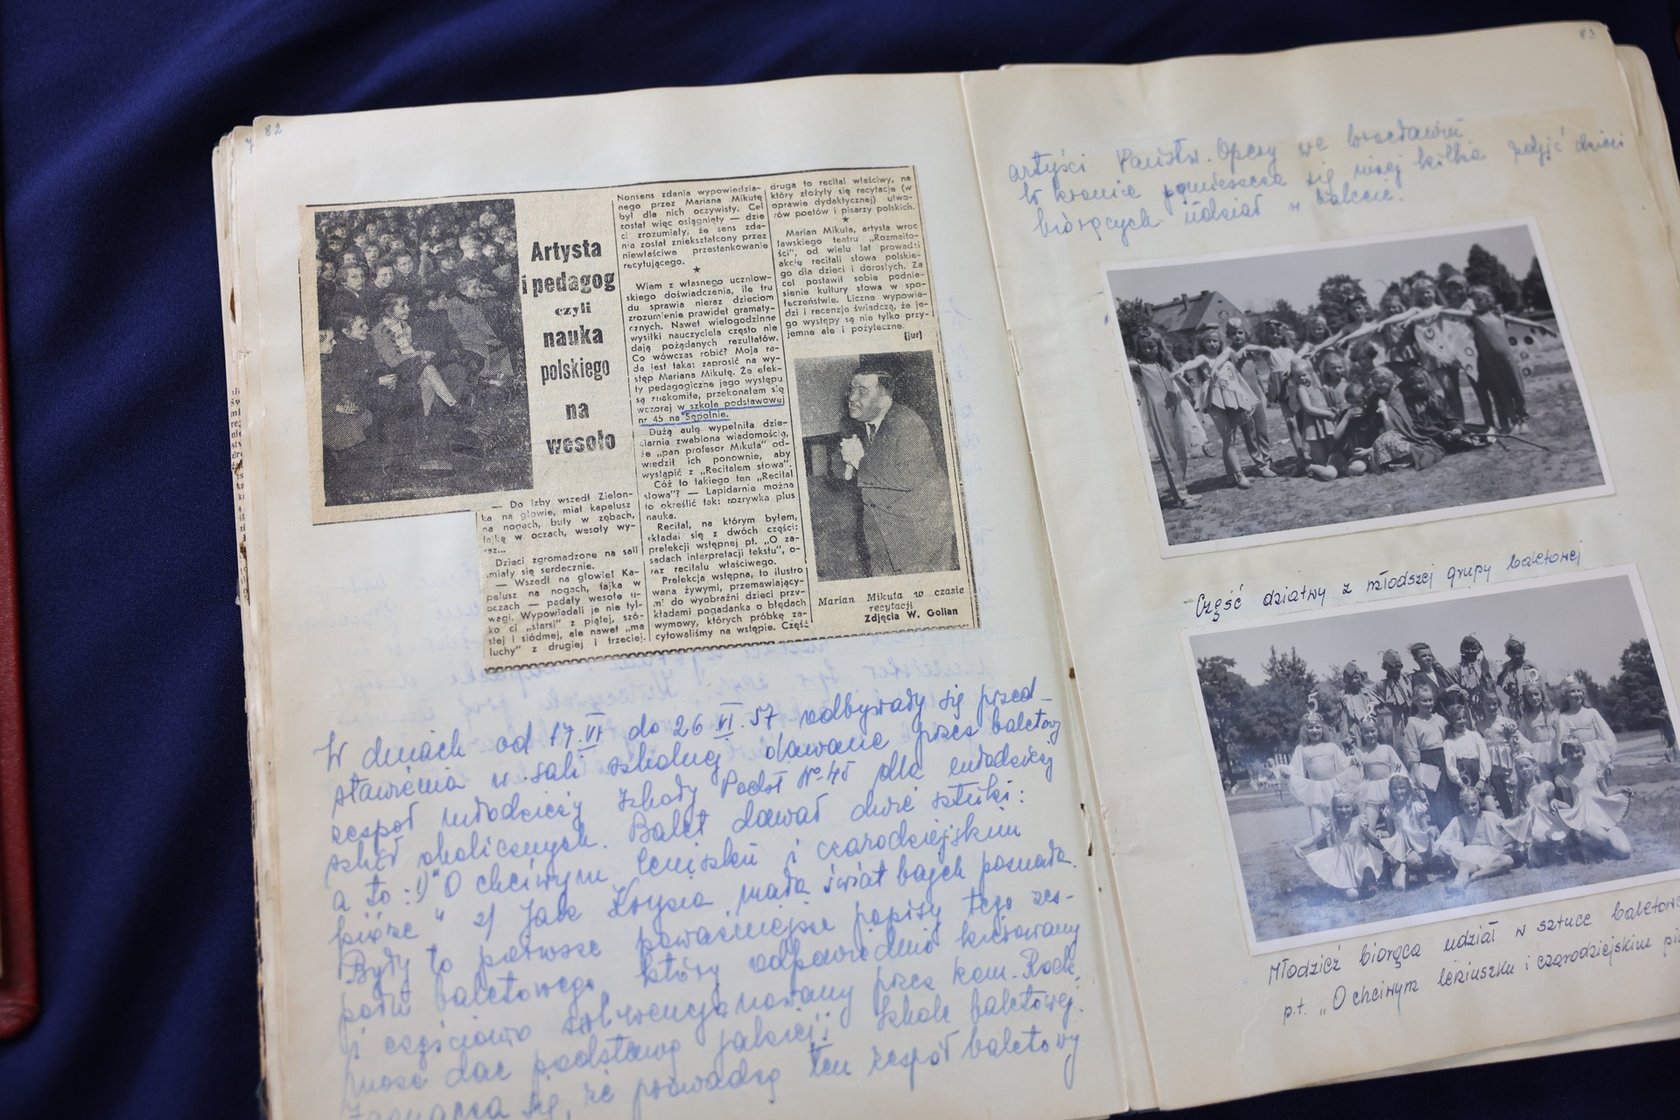 82
Artysta
i pedagog
czyli
nauka
polskiego
na
wesoło
— Do izby wszedł Zielon-
ka na głowie, miał kapelusz
na nogach, buty w zębach,
fajkę w oczach, wesoły wy-
raz...
Dzieci zgromadzone na sali
śmiały się serdecznie.
— Wszedł na głowie! Ka-
pelusz na nogach, fajka w
oczach — padały wesołe u-
wagi. Wypowiadali je nie tyl-
ko ci „starsi" z piątej, szó-
stej i siódmej, ale nawet „ma
luchy" z drugiej i trzeciej.
Nonsens zdania wypowiedzia-
nego przez Mariana Mikutę
był dla nich oczywisty. Cel
został więc osiągnięty — dzie
ci zrozumiały, że sens zda-
nia został zniekształcony przez
niewłaściwe przestankowanie
recytującego.
★
Wiem z własnego uczniow-
skiego doświadczenia, ile tru
du sprawia nieraz dzieciom
zrozumienie prawideł gramaty-
cznych. Nawet wielogodzinne
wysiłki nauczyciela często nie
dają pożądanych rezultatów.
Co wówczas robić? Moja ra-
da jest taka: zaprosić na wy-
stęp Mariana Mikutę. Że efek-
ty pedagogiczne jego występu
są znakomite, przekonałem się
wczoraj w szkole podstawowej
nr 45 na Sępolnie.
Dużą aulę wypełniła dzie-
ciarnia zwabiona wiadomością,
że „pan profesor Mikuta" od-
wiedził ich ponownie, aby
wystąpić z „Recitalem słowa".
Cóż to takiego ten „Recital
słowa"? — Lapidarnie można
to określić tak: rozrywka plus
nauka.
Recital, na którym byłem,
składał się z dwóch części:
prelekcji wstępnej pt. „O za-
sadach interpretacji tekstu", o-
raz recitalu właściwego.
Prelekcja wstępna, to ilustro
wana żywymi, przemawiający-
mi do wyobraźni dzieci przy-
kładami pogadanka o błędach
wymowy, których próbkę za-
cytowaliśmy na wstępie. Część
druga to recital właściwy, na
który złożyły się recytacje (w
oprawie dydaktycznej) utwo-
rów poetów i pisarzy polskich.
★
Marian Mikuta, artysta wroc
ławskiego teatru „Rozmaito-
ści", od wielu lat prowadzi
akcję recitali słowa polskie-
go dla dzieci i dorosłych. Za
cel postawił sobie podnie-
sienie kultury słowa w spo-
łeczeństwie. Liczne wypowie-
dzi i recenzje świadczą, że je-
go występy są nie tylko przy-
jemne ale i pożyteczne.
(jur)
Marian Mikuta w czasie
recytacji
Zdjęcia W. Golian
W dniach od 17.VI do 26.VI.57 odbywały się przed-
stawienia w sali szkolnej dawane przez baletowy
zespół młodzieży Szkoły Podst No 45 dla młodzieży
szkół okolicznych. Balet dawał dwie sztuki:
a to: 1) "O chciwym leniuszku i czarodziejskim
piórze" 2) Jak Krysia mała świat bajek poznała.
Były to pierwsze poważniejsze popisy tego zes-
połu baletowego, który odpowiednio kierowany
i częściowo subwencjonowany przez kom. Rodz.
może dać podstawę jakiejś szkole baletowej.
Zaznacza się, że prowadzą ten zespół baletowy
83
artyści Państw. Opery we Wrocławiu
W kronice pomieszcza się niżej kilka zdjęć dzieci
biorących udział w balecie.
Część dziatwy z młodszej grupy baletowej
Młodzież biorąca udział w sztuce baletowej
p.t. „O chciwym leniuszku i czarodziejskim